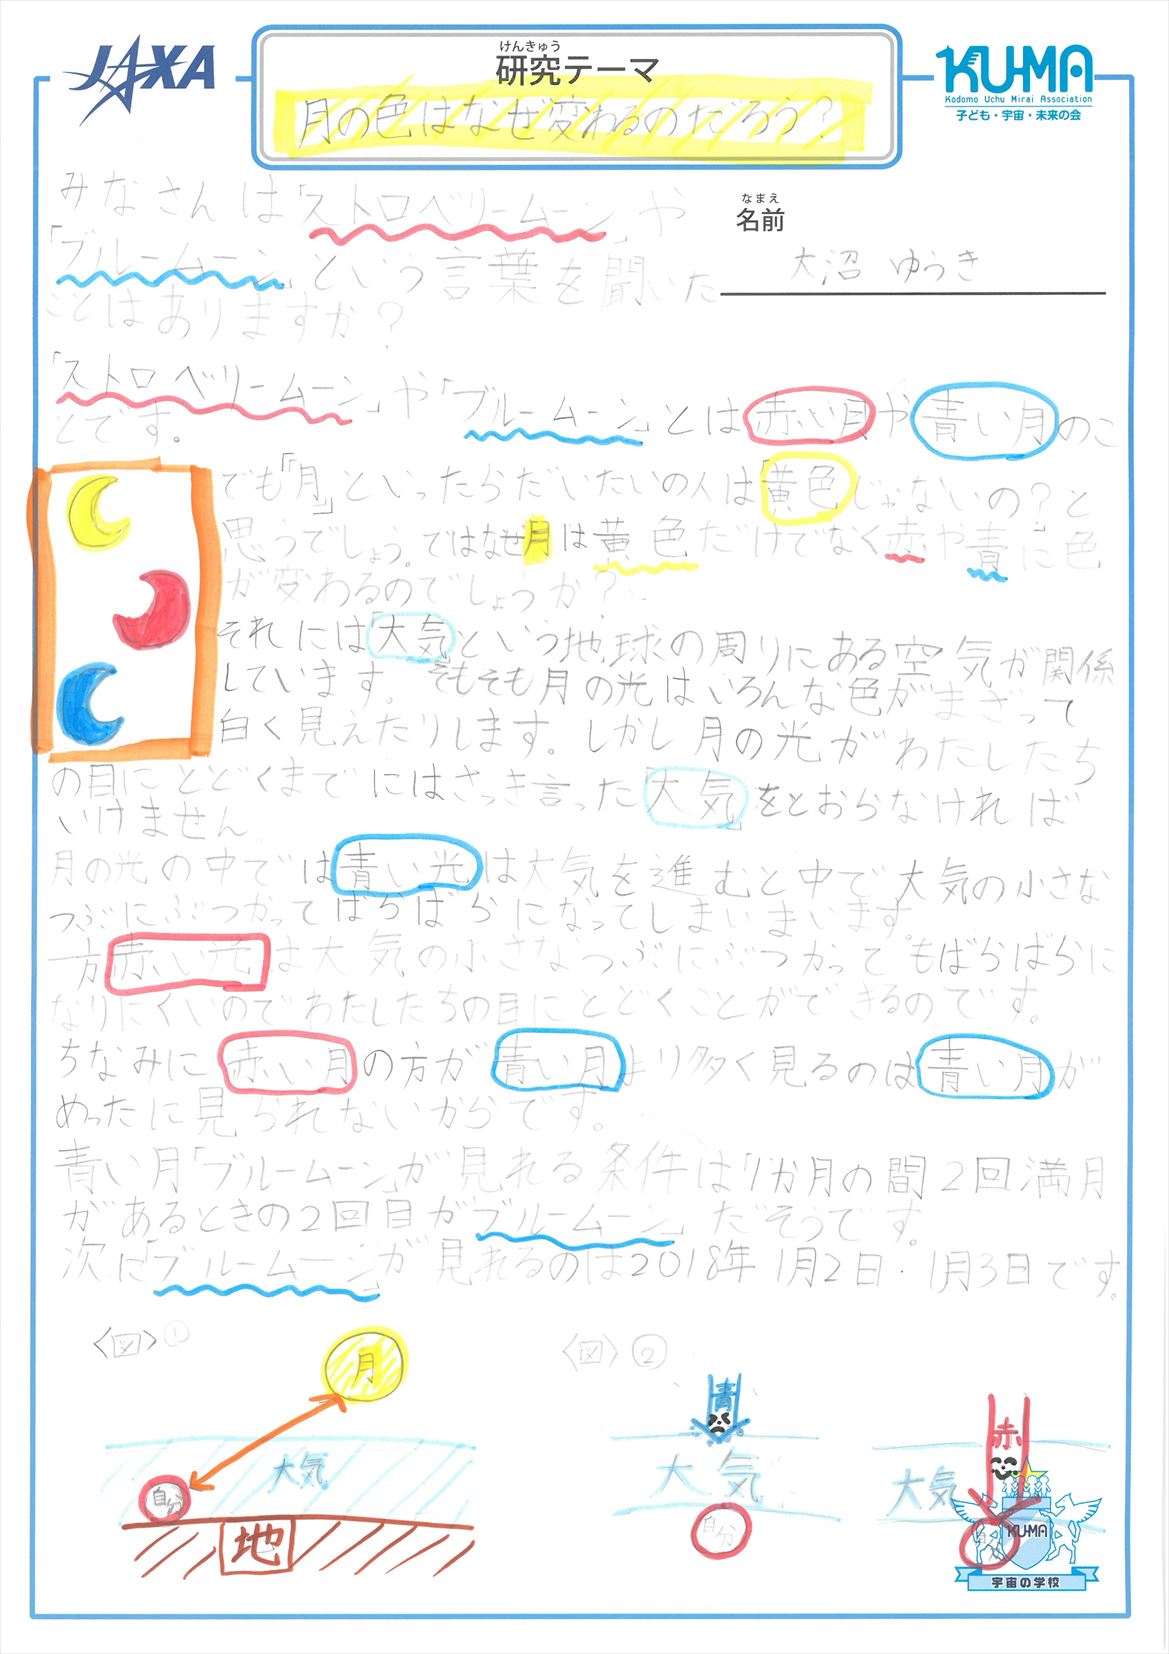 JAXA
けんきゅう
研究テーマ
月の色はなぜ変わるのだろう?
KU-MA
Kodomo Uchu Mirai Association
子ども・宇宙・未来の会
みなさんは「ストロベリームーン」や
「ブルームーン」という言葉を聞いた
ことはありますか?
なまえ
名前
大沼 ゆうき
「ストロベリームーン」や「ブルームーン」とは赤い月や青い月のこ
とです。
でも「月」といったらだいたいの人は「黄色じゃないの?と
思うでしょう。ではなぜ月は黄色だけでなく赤や青に色
が変わるのでしょうか?
それには「大気」という地球の周りにある空気が関係
しています。そもそも月の光はいろんな色がまざって
白く見えたりします。しかし月の光がわたしたち
の目にとどくまでにはさっき言った「大気」をとおらなければ
いけません。
月の光の中では青い光は大気を進むと中で大気の小さな
つぶにぶつかってばらばらになってしまいまいます。
一方赤い光は大気の小さなつぶにぶつかってもばらばらに
なりにくいのでわたしたちの目にとどくことができるのです。
ちなみに赤い月の方が青い月より多く見るのは青い月が
めったに見られないからです。
青い月「ブルームーン」が見れる条件は1か月の間2回満月
があるときの2回目が「ブルームーン」だそうです。
次に「ブルームーン」が見れるのは2018年1月2日・1月3日です。
〈図〉①
月
大気
自分
地
〈図〉②
青
大気
自分
赤
大気
自分
KU-MA
宇宙の学校